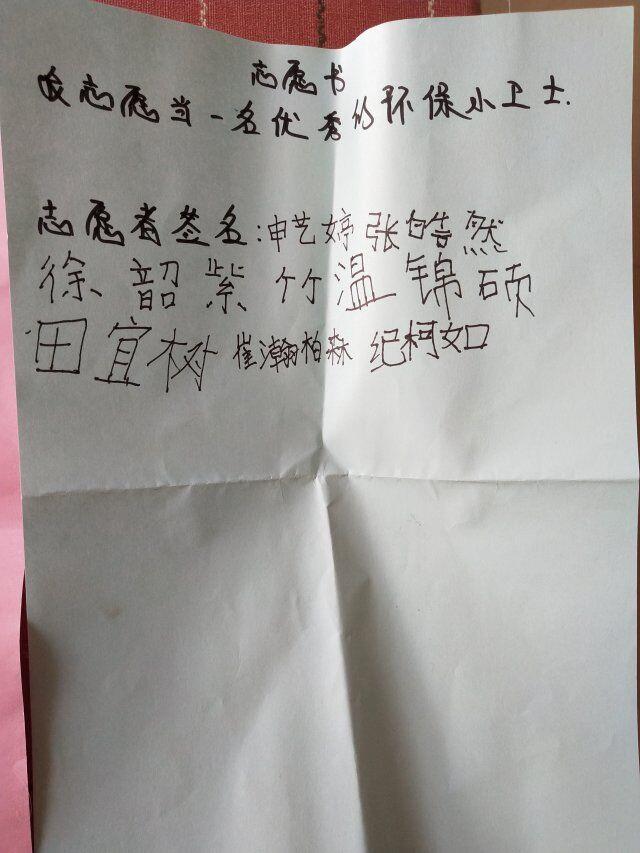 志愿书
我志愿当一名优秀的环保小卫士.
志愿者签名:申艺婷 张皓然
徐韶紫竹 温锦硕
田宜树 崔瀚柏森 纪柯如